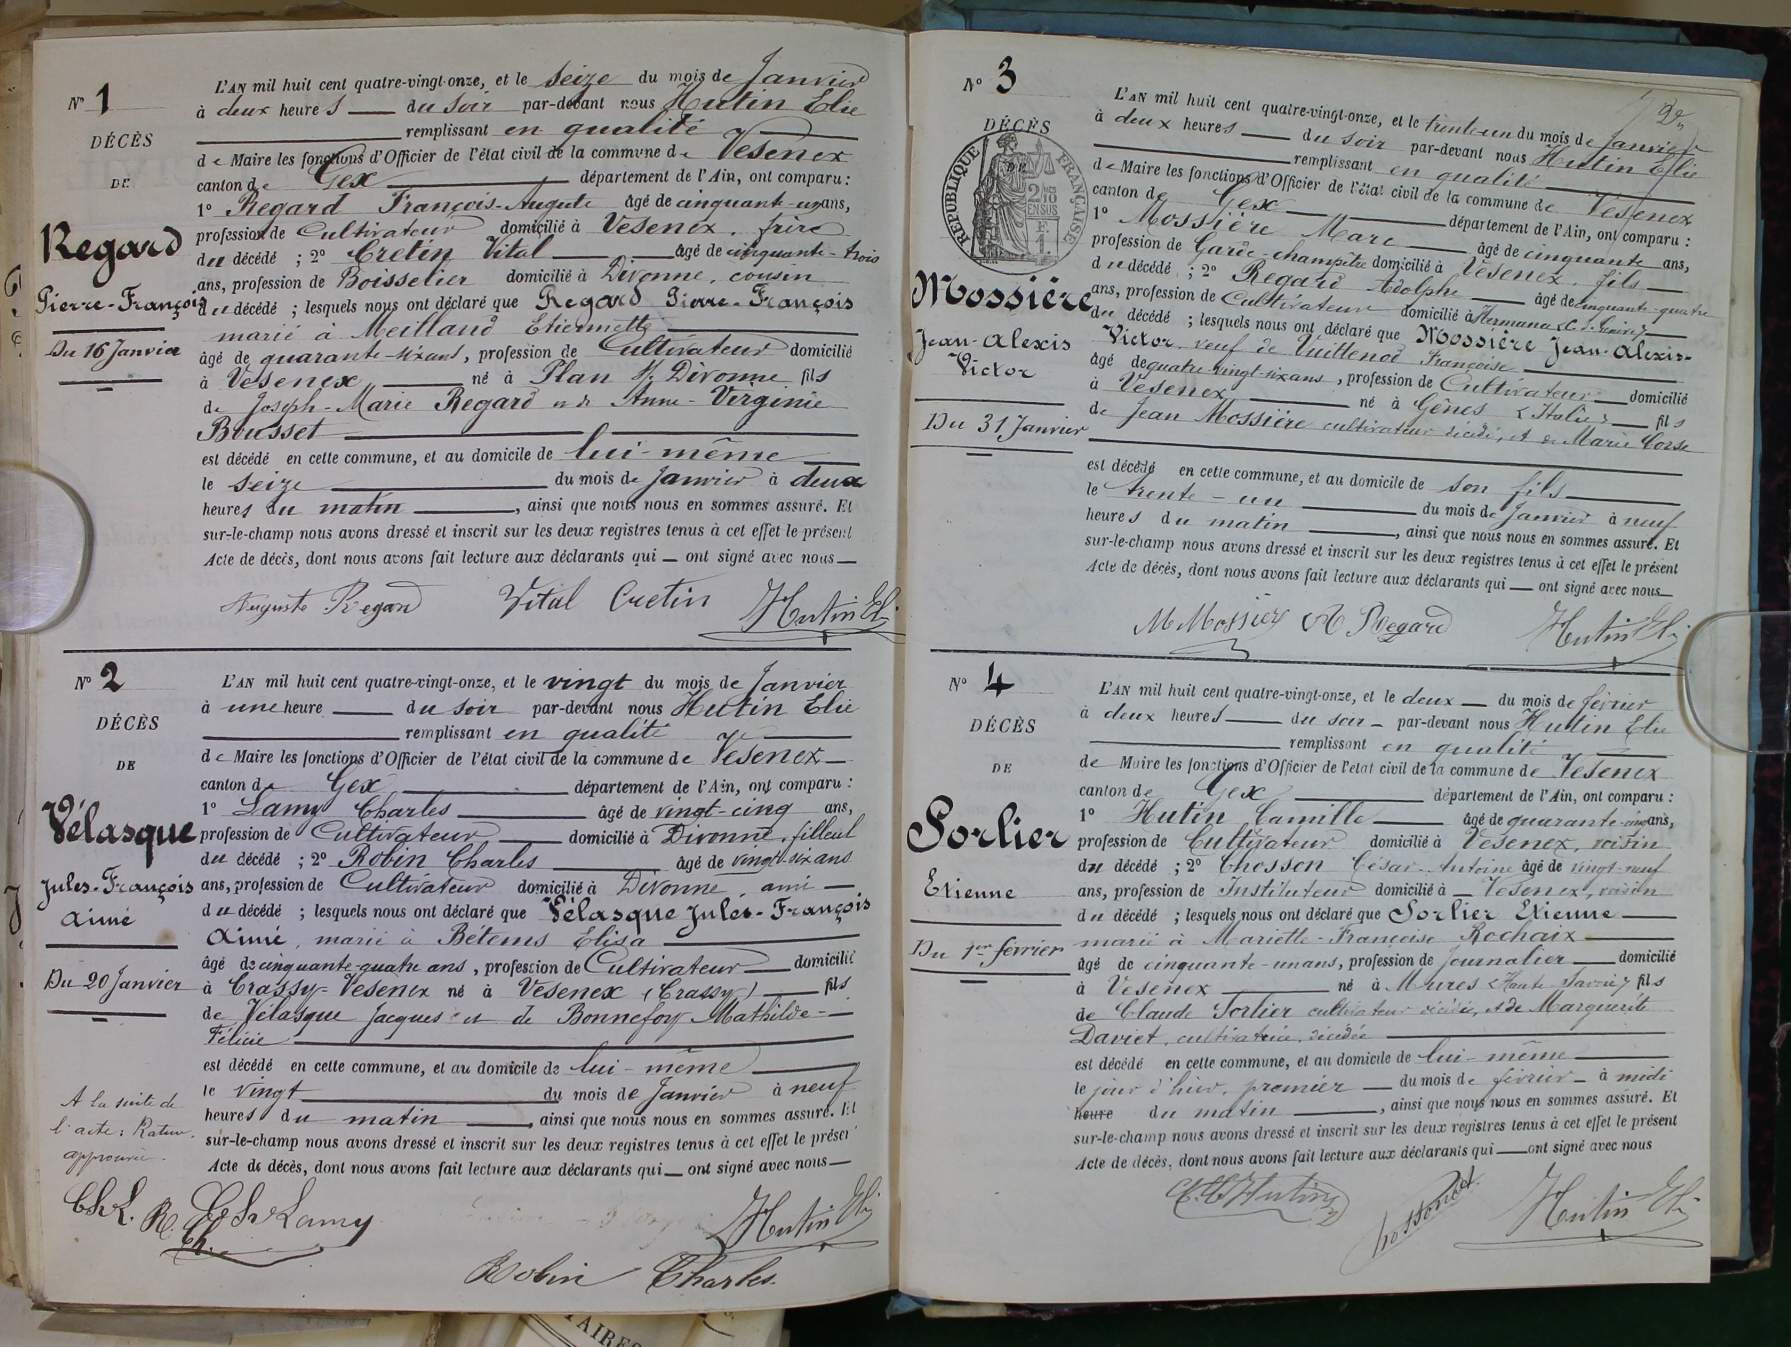 N° 1
DÉCÈS
DE
Regard
Pierre-François
Du 16 Janvier
L'AN mil huit cent quatre-vingt-onze, et le seize du mois de Janvier
à deux heures du soir par-devant nous Hutin Elie
remplissant en qualité
de Maire les fonctions d'Officier de l'état civil de la commune de Vesenex
canton de Gex département de l'Ain, ont comparu :
1° Regard François-Auguste âgé de cinquante-un ans,
profession de Cultivateur domicilié à Vesenex, frère
du décédé ; 2° Cretin Vital âgé de cinquante-trois
ans, profession de Boisselier domicilié à Divonne, cousin
du décédé ; lesquels nous ont déclaré que Regard Pierre-François
marié à Meilland Etiennette
âgé de quarante-six ans, profession de Cultivateur domicilié
à Vesenex né à Plan s/ Divonne fils
de Joseph-Marie Regard et de Anne-Virginie
Bousset
est décédé en cette commune, et au domicile de lui-même
le seize du mois de Janvier à deux
heures du matin, ainsi que nous nous en sommes assuré. Et
sur-le-champ nous avons dressé et inscrit sur les deux registres tenus à cet effet le présent
Acte de décès, dont nous avons fait lecture aux déclarants qui ont signé avec nous
Auguste Regard Vital Cretin Hutin Eli
N° 2
DÉCÈS
DE
Vélasque
Jules-François
Aimé
Du 20 Janvier
L'AN mil huit cent quatre-vingt-onze, et le vingt du mois de Janvier
à une heure du soir par-devant nous Hutin Elie
remplissant en qualité
de Maire les fonctions d'Officier de l'état civil de la commune de Vesenex
canton de Gex département de l'Ain, ont comparu :
1° Lamy Charles âgé de vingt-cinq ans,
profession de Cultivateur domicilié à Divonne, filleul
du décédé ; 2° Robin Charles âgé de vingt-six ans
ans, profession de Cultivateur domicilié à Divonne, ami
du décédé ; lesquels nous ont déclaré que Vélasque Jules-François
Aimé, marié à Bétems Elisa
âgé de cinquante-quatre ans, profession de Cultivateur domicilié
à Crassy-Vesenex né à Vesenex (Crassy) fils
de Vélasque Jacques et de Bonnefoy Mathilde-
Félicie
est décédé en cette commune, et au domicile de lui-même
le vingt du mois de Janvier à neuf
heures du matin, ainsi que nous nous en sommes assuré. Et
sur-le-champ nous avons dressé et inscrit sur les deux registres tenus à cet effet le présent
Acte de décès, dont nous avons fait lecture aux déclarants qui ont signé avec nous
A la suite de
l'acte : Rature
approuvée.
Ch L. R. Ch. Ch Lamy Hutin Eli
Robin Charles.
N° 3
DÉCÈS
DE
RÉPUBLIQUE FRANÇAISE
2/10 EN SUS
Mossière
Jean-Alexis
Victor
Du 31 Janvier
L'AN mil huit cent quatre-vingt-onze, et le trente-un du mois de Janvier
à deux heures du soir par-devant nous Hutin Elie
remplissant en qualité
de Maire les fonctions d'Officier de l'état civil de la commune de Vesenex
canton de Gex département de l'Ain, ont comparu :
1° Mossière Marc âgé de cinquante ans,
profession de Garde-champêtre domicilié à Vesenex, fils
du décédé ; 2° Regard Adolphe âgé de cinquante-quatre
ans, profession de Cultivateur domicilié à
du décédé ; lesquels nous ont déclaré que Mossière Jean-Alexis-
Victor veuf de Vuittenod Françoise
âgé de quatre vingt-six ans, profession de Cultivateur domicilié
à Vesenex né à Gênes (Italie) fils
de Jean Mossière cultivateur décédé, et de Marie Corse
est décédé en cette commune, et au domicile de son fils
le trente-un du mois de Janvier à neuf
heures du matin, ainsi que nous nous en sommes assuré. Et
sur-le-champ nous avons dressé et inscrit sur les deux registres tenus à cet effet le présent
Acte de décès, dont nous avons fait lecture aux déclarants qui ont signé avec nous
M Mossier A Regard Hutin Eli
N° 4
DÉCÈS
DE
Sorlier
Etienne
Du 1er février
L'AN mil huit cent quatre-vingt-onze, et le deux du mois de février
à deux heures du soir par-devant nous Hutin Elie
remplissant en qualité
de Maire les fonctions d'Officier de l'état civil de la commune de Vesenex
canton de Gex département de l'Ain, ont comparu :
1° Hutin Camille âgé de quarante- ans,
profession de Cultivateur domicilié à Vesenex, voisin
du décédé ; 2° Chosson César-Antoine âgé de vingt-neuf
ans, profession de Instituteur domicilié à Vesenex, voisin
du décédé ; lesquels nous ont déclaré que Sorlier Etienne
marié à Mariette-Françoise Rochaix
âgé de cinquante-un ans, profession de journalier domicilié
à Vesenex né à Mures (Haute Savoie) fils
de Claude Sorlier cultivateur décédé, et de Marguerite
Daviet, cultivatrice, décédée
est décédé en cette commune, et au domicile de lui-même
le jour d'hier, premier du mois de février à midi
heure du matin, ainsi que nous nous en sommes assuré. Et
sur-le-champ nous avons dressé et inscrit sur les deux registres tenus à cet effet le présent
Acte de décès, dont nous avons fait lecture aux déclarants qui ont signé avec nous
Hutin Hutin Eli